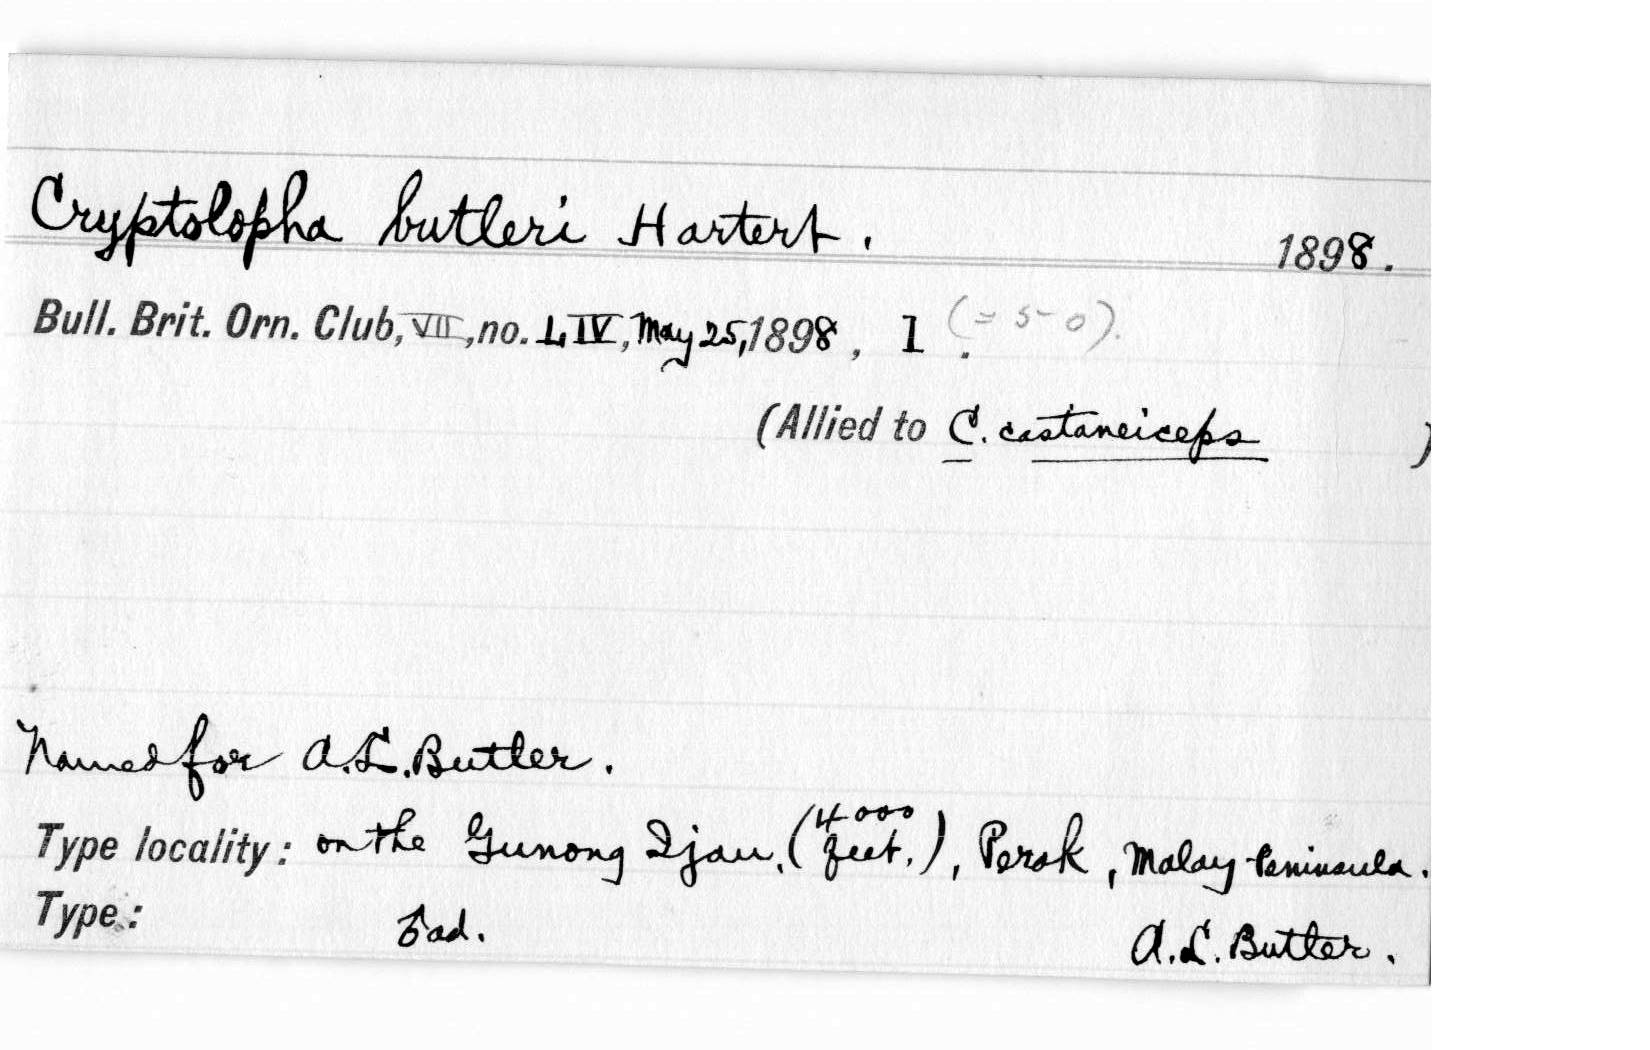 Cryptolopha butleri Hartert. 1898.
Bull. Brit. Orn. Club, VII, no. LIV, May 25, 1898, 1 (= 50).
(Allied to C. castaneiceps )
Named for A.L. Butler.
Type locality: on the Gunong Ijau, (4000 feet.), Perak, Malay Peninsula.
Type: ad. A.L. Butler.